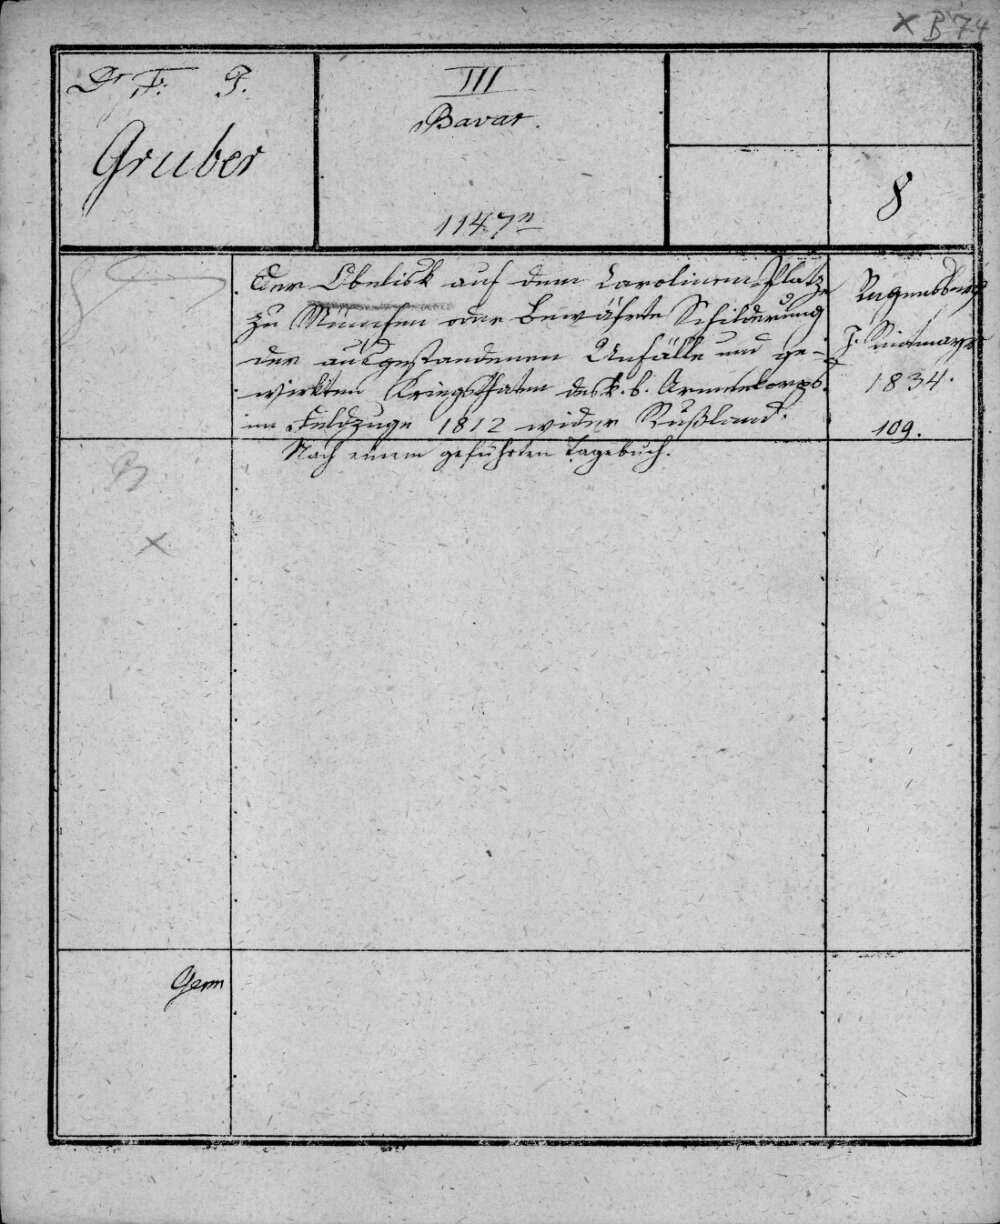 × B 74
Dr. F. J.
Gruber
III
Bavar.
1147 n
8
Der Obelisk auf dem Carolinen-Platz
zu München oder Bewährte Schilderung
der ausgestandenen Unfälle und ge-
wirkten Kriegsthaten des k. b. Armeekorps
im Feldzuge 1812 wider Rußland.
Nach einem geführten Tagebuch.
Regensburg
J. Reitmayr
1834.
109.
×
Germ